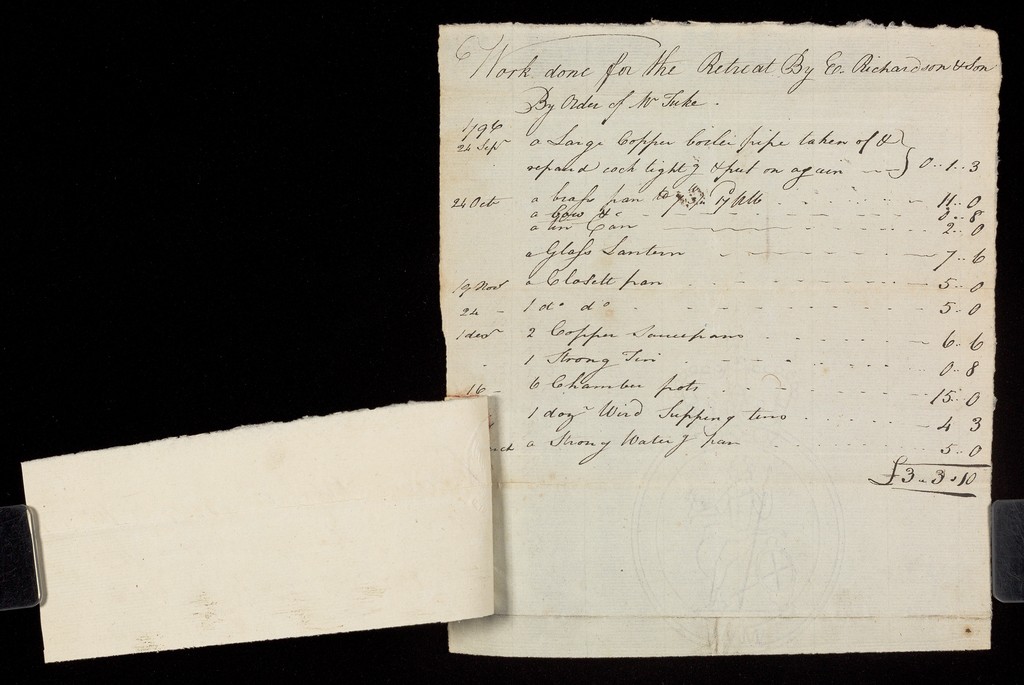 Work done for the Retreat By E. Richardson & Son
By Order of Mr Tuke.
1796
24 Sepr a Large Copper boiler pipe taken of &
repaird cock tight g & put on again 0..1..3
24 Octr a brass pan 11..0
a &c 0..8
a tin Can 2..0
a Glass Lantern 7..6
19 Novr a Closett pan 5..0
24 - 1 do do 5..0
1 decr 2 Copper Saucepans 6..6
1 Strong Tin 0..8
16 - 6 Chamber pots 15..0
1 dozn Wird Supping tins 4 3
a Strong Water g pan 5..0
£3..3..10